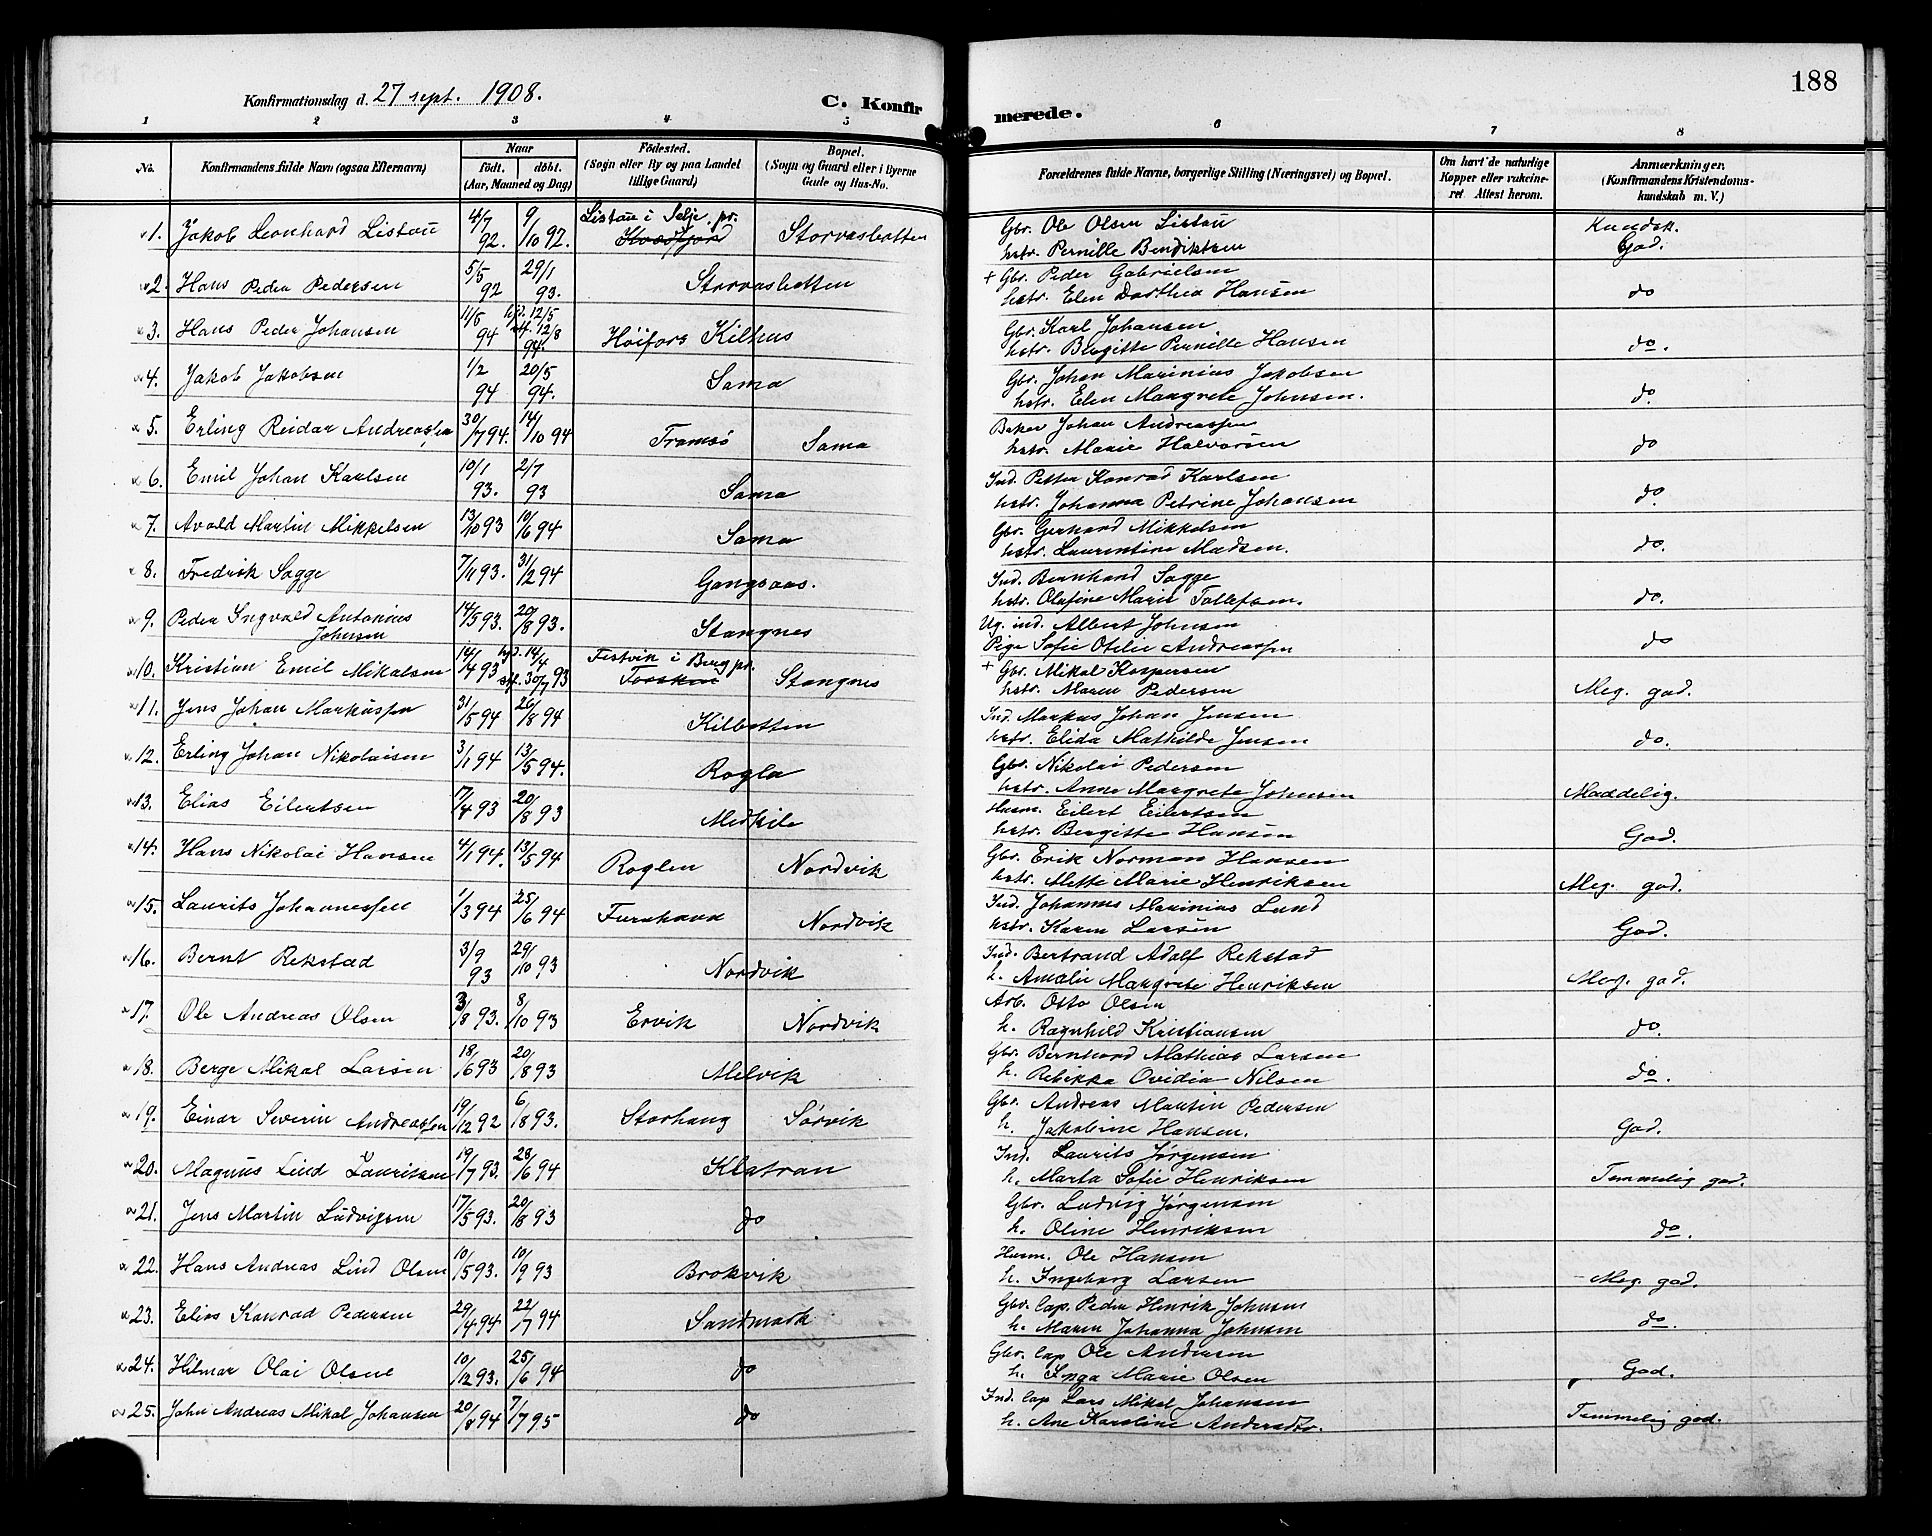 188
Konfirmationsdag d. 27 sept. 1908.
C. Konfirmerede.
1 2 3 4 5 6 7 8
No.
Konfirmandens fulde Navn (ogsaa Efternavn)
Naar
födt. döbt.
(Aar, Maaned og Dag)
Födested.
(Sogn eller By og paa Landet
tillige Gaard)
Bopæl.
(Sogn og Gaard eller i Byerne
Gade og Hus-No.
Forældrenes fulde Navne, borgerlige Stilling (Næringsvei) og Bopæl.
Om havt de naturlige
Kopper eller vakcine-
ret. Attest herom.
Anmærkninger.
(Konfirmandens Kristendoms-
kundskab m. V.)
1. Jakob Leonhard Listau 4/7 92. 9/10 92. Listau i Selje pr. Storvasbotten Gbr. Ole Olsen Listau hstr. Pernille Bendiktsen Kundsk. God.
2. Hans Peder Pedersen 5/5 92 29/1 93. Storvasbotten + Gbr. Peder Gabrielsen hstr. Elen Dorthea Hansen do
3. Hans Peder Johansen 11/5 94 hjd. 12/5 stf. 12/8 94. Höifors Kilhus Gbr. Karl Johansen hstr. Birgitte Pernille Hansen do.
4. Jakob Jakobsen 1/2 94 20/5 94. Sama Gbr. Johan Marinius Jakobsen hstr. Elen Margrete Johnsen. do.
5. Erling Reidar Andreassen 30/7 94. 14/10 94 Tromsö Sama Baker Johan Andreassen hstr. Marie Halvorsen do
6. Emil Johan Karlsen 10/1 93. 2/7 93 Sama Ind. Petter Konrad Karlsen hstr. Johanna Petrine Johansen do
7. Avald Martin Mikkelsen 13/10 93 10/6 94 Sama Gbr. Gerhard Mikkelsen hstr. Laurentine Madsen. do.
8. Fredrik Sagge 7/11 93. 31/12 94 Gangsaas. Ind. Bernhard Sagge hstr. Olufine Marie Tollefsen. do.
9. Peder Ingvald Antonius Johnsen 14/5 93. 20/8 93. Stangnes Ug. ind. Albert Johnsen Pige Sofie Otelie Andreassen do
10. Kristian Emil Mikalsen 14/4 93 hjd. 14/4 stf. 30/7 93 i Berg pr. Torsken Stangnes + Gbr. Mikal Kaspersen hstr. Maren Pedersen Meg. god.
11. Jens Johan Markussen 31/5 94 26/8 94 Kilbotten Ind. Markus Johan Jensen hstr. Elida Mathilde Jensen do.
12. Erling Johan Nikolaisen 3/1 94 13/5 94. Rogla Gbr. Nikolai Pedersen hstr. Anne Margrete Johnsen Maadelig.
13. Elias Eilertsen 17/4 93 20/8 93 Medkile Husm. Eilert Eilertsen hstr. Bergitte Hansen God.
14. Hans Nikolai Hansen 4/1 94. 13/5 94 Roglen Nordvik Gbr. Erik Norman Hansen hstr. Mette Marie Henriksen Meg. god.
15. Laurits Johannessen 1/3 94 25/6 94 Furuhavn Nordvik Ind. Johannes Marinius Lund hstr. Karen Larsen God.
16. Bernt Rekstad 3/9 93 29/10 93 Nordvik Ind. Bertrand Adolf Rekstad h. Amalie Margrete Henriksen Meg. god.
17. Ole Andreas Olsen 3/8 93. 8/10 93 Ervik Nordvik Arb. Otto Olsen h. Ragnhild Kristiansen do.
18. Berge Mikal Larsen 18/6 93 20/8 93 Melvik Gbr. Bernhard Mathias Larsen h. Rebekka Ovidia Nilsen do.
19. Einar Severin Andreassen 19/12 92 6/8 93. Storhaug Sørvik Gbr. Andreas Martin Pedersen h. Jakobine Hansen. God.
20. Magnus Lind Lauritsen 19/7 93. 28/6 94 Klatran Ind. Laurits Jørgensen h. Marta Sofie Henriksen Temmelig god.
21. Jens Martin Ludvigsen 17/5 93. 20/8 93 do Gbr. Ludvig Jørgensen h. Oline Henriksen do.
22. Hans Andreas Lind Olsen 10/5 93. 10/9 93 Brokvik Husm. Ole Hansen h. Ingeborg Larsen Meg. god.
23. Elias Konrad Pedersen 29/4 94 22/7 94 Sandmark Gbr. lap. Peder Henrik Johnsen h. Maren Johanna Johnsen do.
24. Hilmar Olai Olsen 10/12 93. 25/6 94 do Gbr. lap Ole Andersen h. Inga Marie Olsen God.
25. John Andreas Mikal Johansen 20/8 94 7/7 95 do Ind. lap Lars Mikal Johansen h. Ane Karoline Andersdtr. Temmelig god.